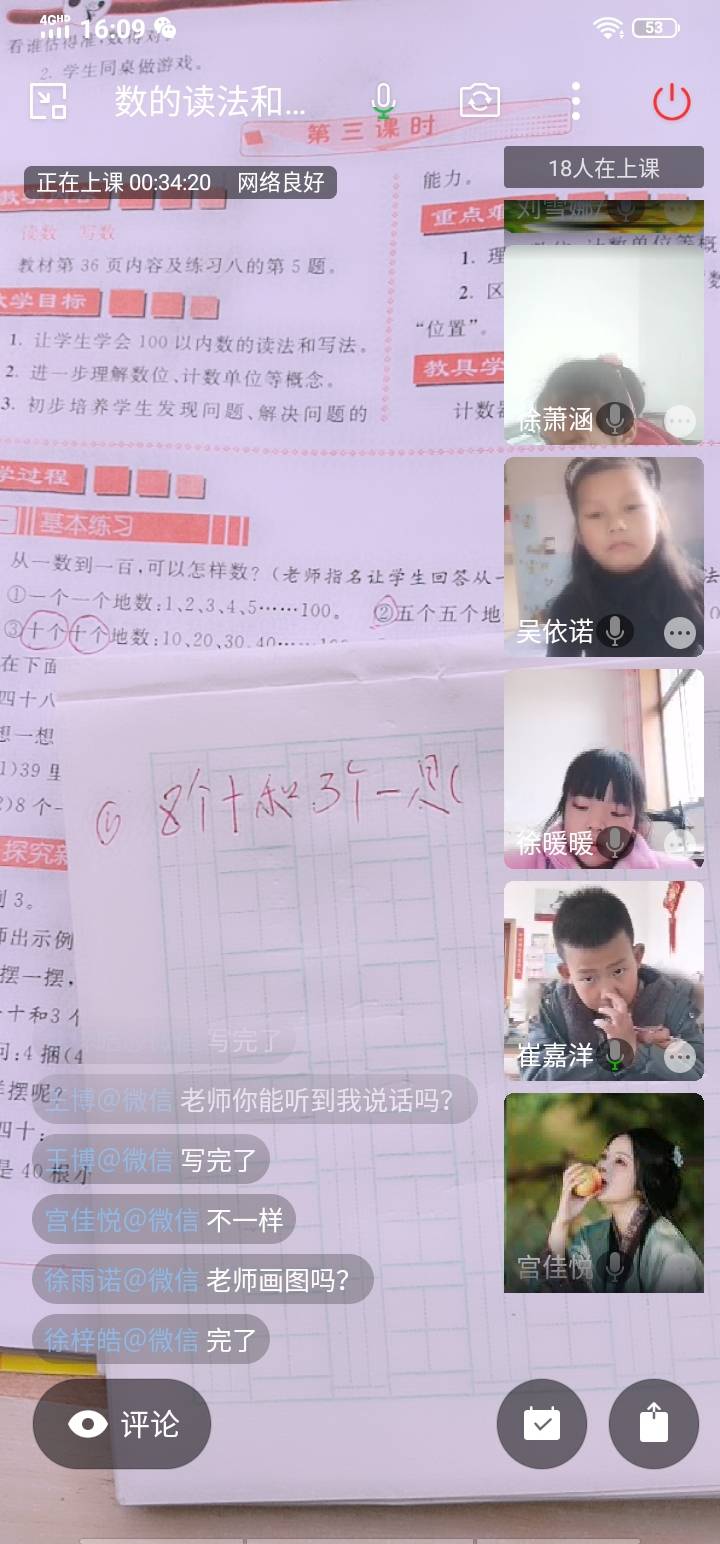 4GHD 16:09 53
看谁估得准,数得对。
2. 学生同桌做游戏。
数的读法和...
第三课时
正在上课 00:34:20 网络良好
18人在上课
读数 写数
教材第 36 页内容及练习八的第 5 题。
学目标
1. 让学生学会 100 以内数的读法和写法。
2. 进一步理解数位、计数单位等概念。
3. 初步培养学生发现问题、解决问题的
能力。
重点难
1. 理
2. 区
“位置”。
教具学
计数器
学过程
一 基本练习
从一数到一百,可以怎样数?(老师指名让学生回答从一
①一个一个地数:1、2、3、4、5……100。 ②五个五个地
③十个十个地数:10、20、30、40……
在下面
四十八
想一想
1)39 里
2)8 个一
探究新
例 3。
师出示例
摆一摆,
十和3个
问:4 捆(4
样摆呢?
四十:
是 40 根小
① 8个十和3个一是(
刘雪娜
徐萧涵
吴依诺
徐暖暖
崔嘉洋
宫佳悦
写完了
王博@微信 老师你能听到我说话吗?
王博@微信 写完了
宫佳悦@微信 不一样
徐雨诺@微信 老师画图吗?
徐梓皓@微信 完了
评论